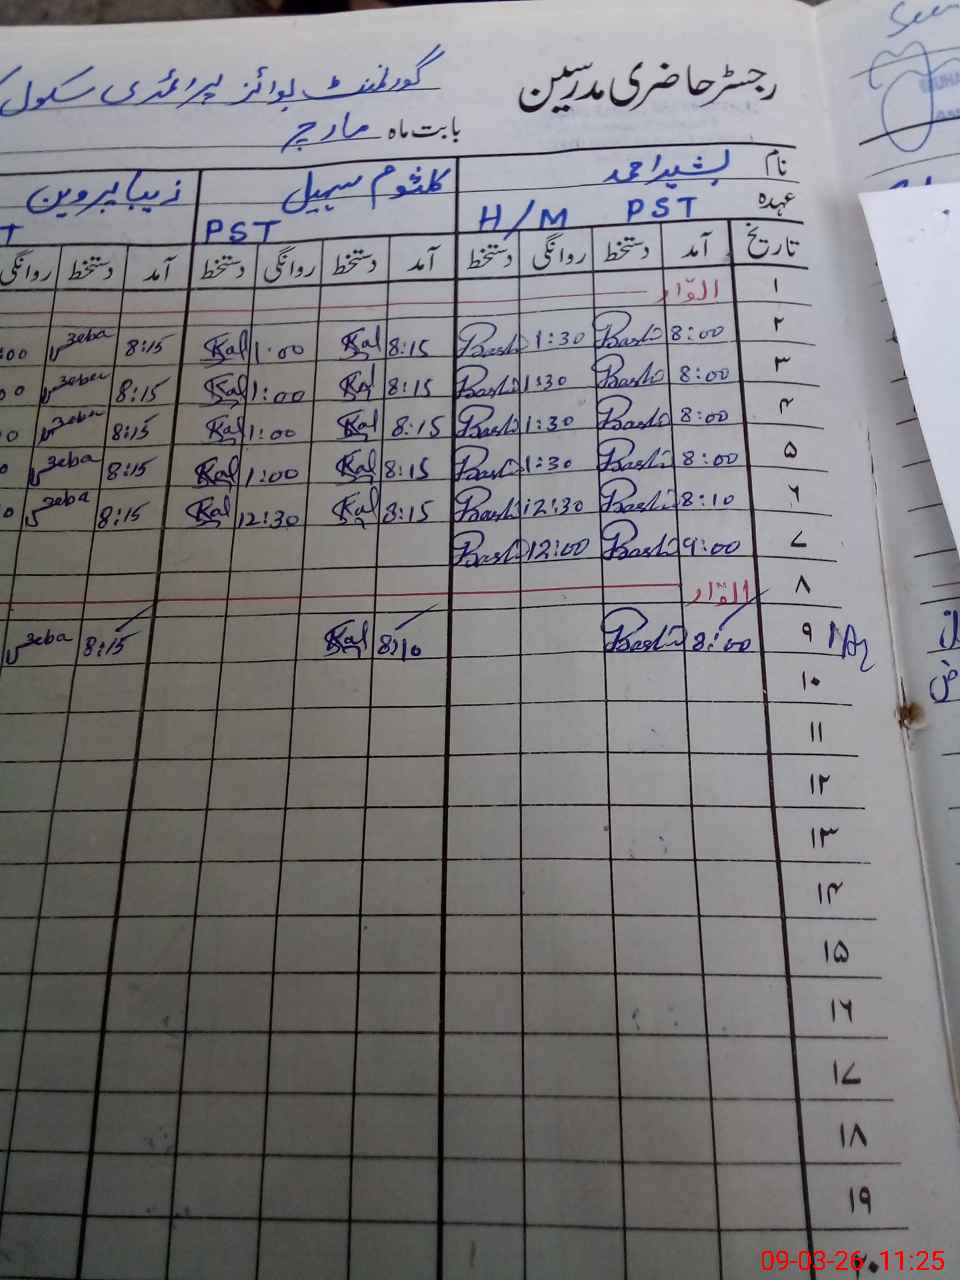 رجسٹر حاضری مدرسین گورنمنٹ بوائز پرائمری سکول
بابت ماہ مارچ
نام بشیر احمد کلثوم سہیل زیبا پروین
عہدہ PST H/M PST T
تاریخ آمد دستخط روانگی دستخط آمد دستخط روانگی دستخط آمد دستخط روانگی
۱ اتوار
۲ 8:00 Bashi 1:30 Bashi 8:15 Kal 1:00 Kal 8:15 zeba :00
۳ 8:00 Bashi 1:30 Bashi 8:15 Kal 1:00 Kal 8:15 zeba 00
۴ 8:00 Bashi 1:30 Bashi 8:15 Kal 1:00 Kal 8:15 zeba 0
۵ 8:00 Bashi 1:30 Bashi 8:15 Kal 1:00 Kal 8:15 zeba 0
۶ 8:10 Bashi 12:30 Bashi 8:15 Kal 12:30 Kal 8:15 zeba 0
۷ 9:00 Bashi 12:00 Bashi
۸ اتوار
۹ 8:00 Bashi 8:10 Kal 8:15 zeba
۱۰
۱۱
۱۲
۱۳
۱۴
۱۵
۱۶
۱۷
۱۸
۱۹
۲۰
09-03-26 11:25